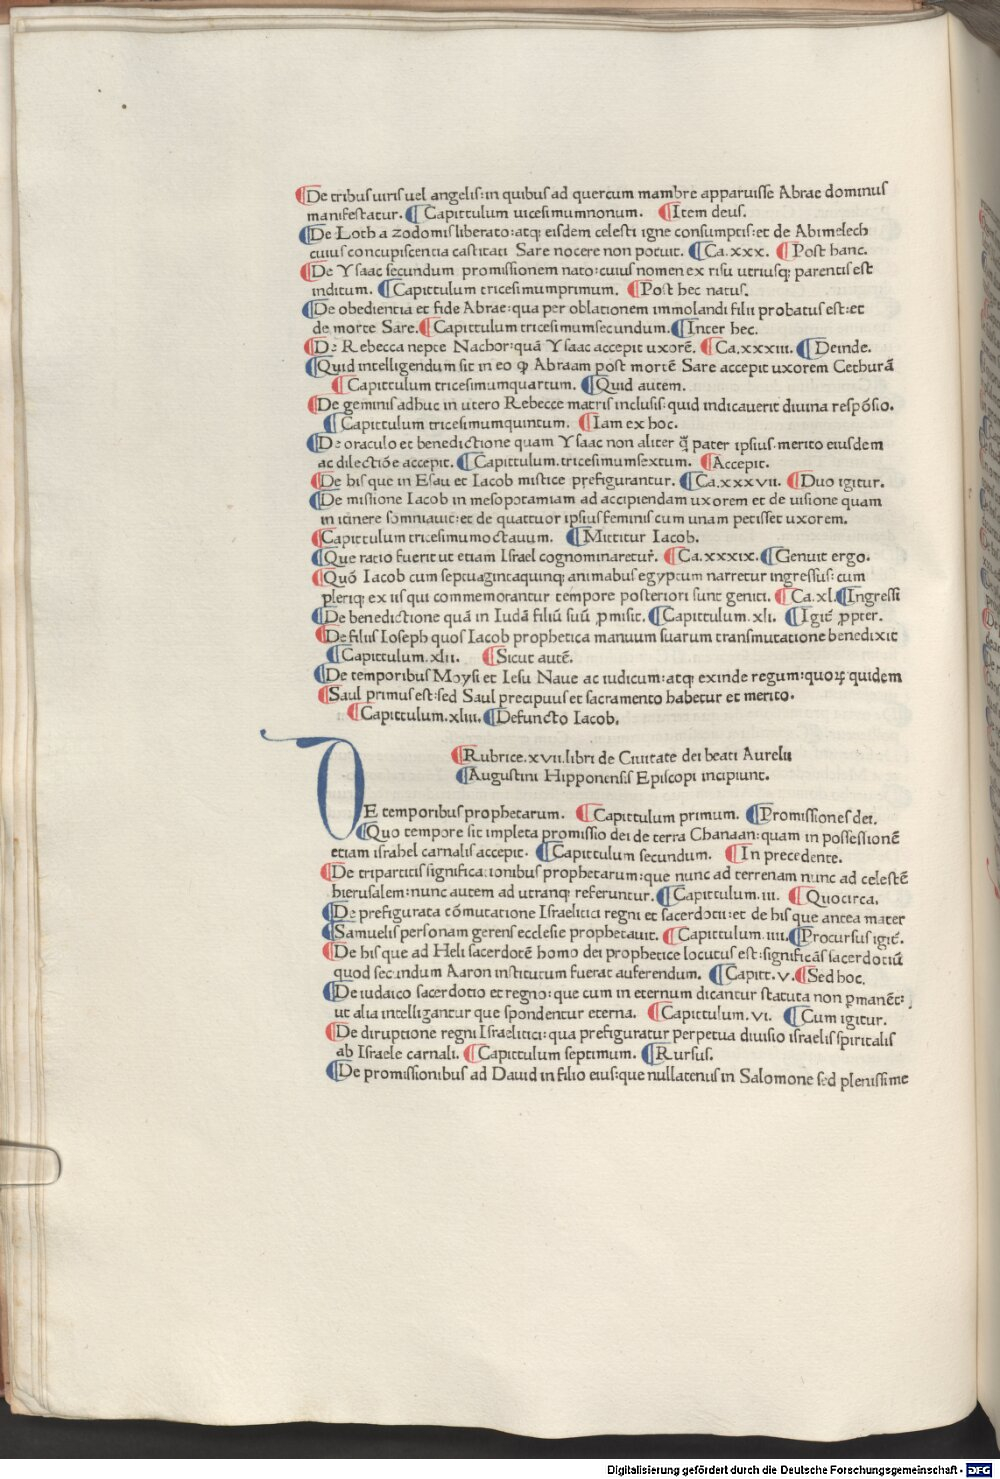 ¶De tribus uiris uel angelis: in quibus ad quercum mambre apparuisse Abrae dominus
manifestatur. ¶Capittulum uicesimumnonum. ¶Item deus.
¶De Loth a zodomis liberato: atq; eisdem celesti igne consumptis: et de Abimelech
cuius concupiscentia castitati Sare nocere non potuit. ¶Ca.xxx. ¶Post hanc.
¶De Ysaac secundum promissionem nato: cuius nomen ex risu utriusq; parentis est
inditum. ¶Capittulum tricesimumprimum. ¶Post hec natus.
¶De obedientia et fide Abrae: qua per oblationem immolandi filii probatus est: et
de morte Sare. ¶Capittulum tricesimumsecundum. ¶Inter hec.
¶De Rebecca nepte Nachor: quā Ysaac accepit uxorē. ¶Ca.xxxiii. ¶Deinde.
¶Quid intelligendum sit in eo ꝙ Abraam post mortē Sare accepit uxorem Cethurā
¶Capittulum tricesimumquartum. ¶Quid autem.
¶De geminis adhuc in utero Rebecce matris inclusis: quid indicauerit diuina respōsio.
¶Capittulum tricesimumquintum. ¶Iam ex hoc.
¶De oraculo et benedictione quam Ysaac non aliter q̄ pater ipsius. merito eiusdem
ac dilectiōe accepit. ¶Capittulum. tricesimumsextum. ¶Accepit.
¶De his que in Esau et Iacob mistice prefigurantur. ¶Ca.xxxvii. ¶Duo igitur.
¶De missione Iacob in mesopotamiam ad accipiendam uxorem et de uisione quam
in itinere somniauit: et de quattuor ipsius feminis cum unam petisset uxorem.
¶Capittulum tricesimumoctauum. ¶Mittitur Iacob.
¶Que ratio fuerit ut etiam Israel cognominaretur̄. ¶Ca.xxxix. ¶Genuit ergo.
¶Quō Iacob cum septuagintaquinq; animabus egyptum narretur ingressus: cum
pleriq; ex iis qui commemorantur tempore posteriori sunt geniti. ¶Ca.xl. ¶Ingressi
¶De benedictione quā in Iudā filiū suū ꝓmisit. ¶Capittulum.xli. ¶Igit̄ ꝓpter.
¶De filiis Ioseph quos Iacob prophetica manuum suarum transmutatione benedixit
¶Capittulum.xlii. ¶Sicut autē.
¶De temporibus Moysi et Iesu Naue ac iudicum: atq; exinde regum: quoꝝ quidem
¶Saul primus est: sed Saul precipuus et sacramento habetur et merito.
¶Capittulum.xliii. ¶Defuncto Iacob.
¶Rubrice.xvii.libri de Ciuitate dei beati Aurelii
¶Augustini Hipponensis Episcopi incipiunt.
DE temporibus prophetarum. ¶Capittulum primum. ¶Promissiones dei.
¶Quo tempore sit impleta promissio dei de terra Chanaan: quam in possessionē
etiam israhel carnalis accepit. ¶Capittulum secundum. ¶In precedente.
¶De tripartitis significationibus prophetarum: que nunc ad terrenam nunc ad celestē
hierusalem: nunc autem ad utranq; referuntur. ¶Capittulum.iii. ¶Quocirca.
¶De prefigurata cōmutatione Israelitici regni et sacerdotii: et de his que antea mater
¶Samuelis personam gerens ecclesie prophetauit. ¶Capittulum.iiii. ¶Procursus igit̄.
¶De his que ad Heli sacerdotē homo dei prophetice locutus est: significās sacerdotiū
quod secundum Aaron institutum fuerat auferendum. ¶Capitt.v. ¶Sed hoc.
¶De iudaico sacerdotio et regno: que cum in eternum dicantur statuta non ꝑmanēt:
ut alia intelligantur que spondentur eterna. ¶Capittulum.vi. ¶Cum igitur.
¶De diruptione regni Israelitici: qua prefiguratur perpetua diuisio israelis spiritalis
ab Israele carnali. ¶Capittulum septimum. ¶Rursus.
¶De promissionibus ad Dauid in filio eius: que nullatenus in Salomone sed plenissime
Digitalisierung gefördert durch die Deutsche Forschungsgemeinschaft - DFG